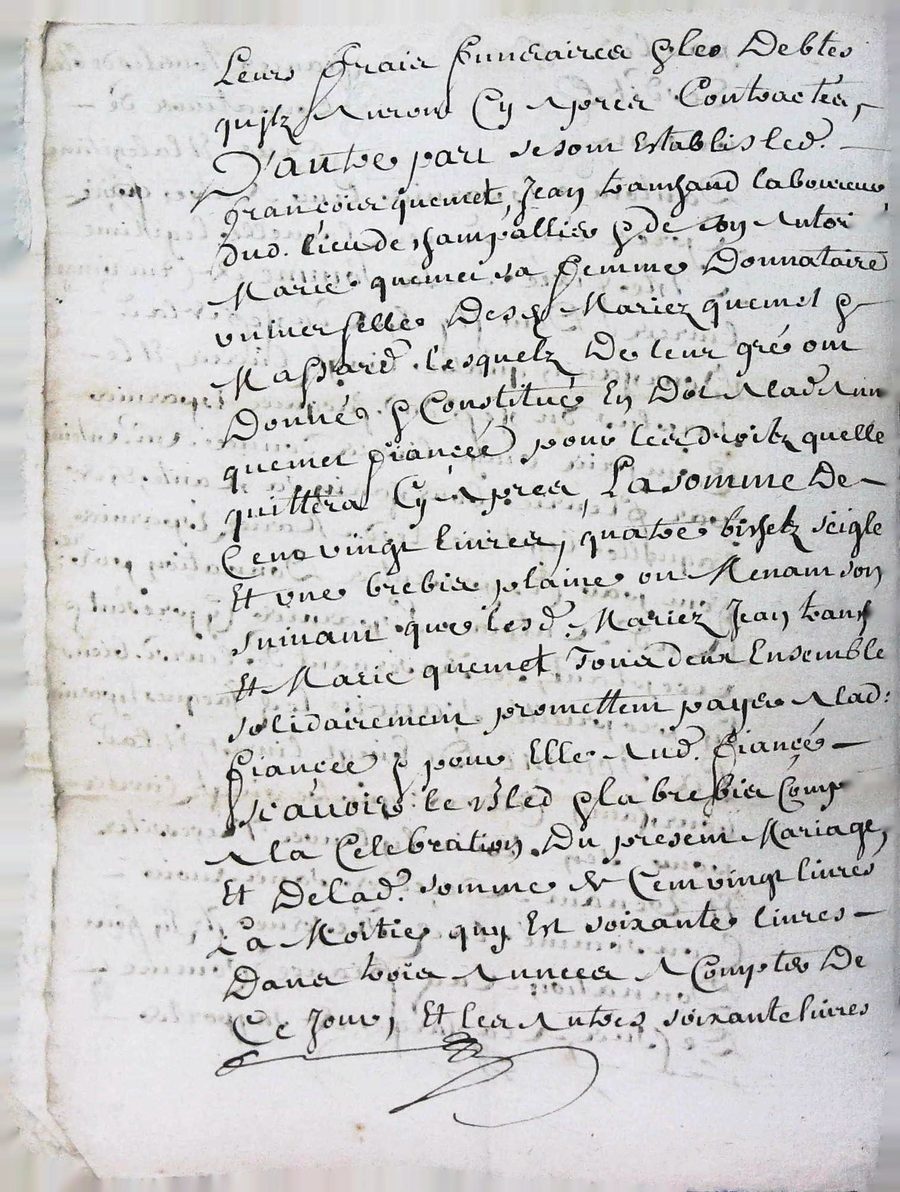 Leurs frais funeraires & les Debtes
quilz Auront Cy Apres Contractés,
D'autre part se sont Establis led.
françois quemet, Jean laboureur
dud. lieu de & de son Autor
Marie quemet sa femme Donnataire
universelle Desd Mariez quemet &
Massard. lesquelz De leur gré ont
Donné & Constitué En Dot A lad. Ann
quemet fiancée pour les droitz quelle
quittera Cy Apres, La somme De
Cent vingt livres, quatre bissetz seigle
Et une brebis plaine ou Menant son
suivant que lesd. Mariez Jean
Et Marie quemet Tous deux Ensemble
solidairement promettent payer A lad:
fiancée & pour Elle Aud. fiancé
scavoir le bled & la brebis Comp
A la Celebration Du present Mariage,
Et De lad. somme de Cent vingt livres
La Moitie quy Est soixante livres
Dans trois Annees A Compter De
Ce Jour, Et les Autres soixante livres